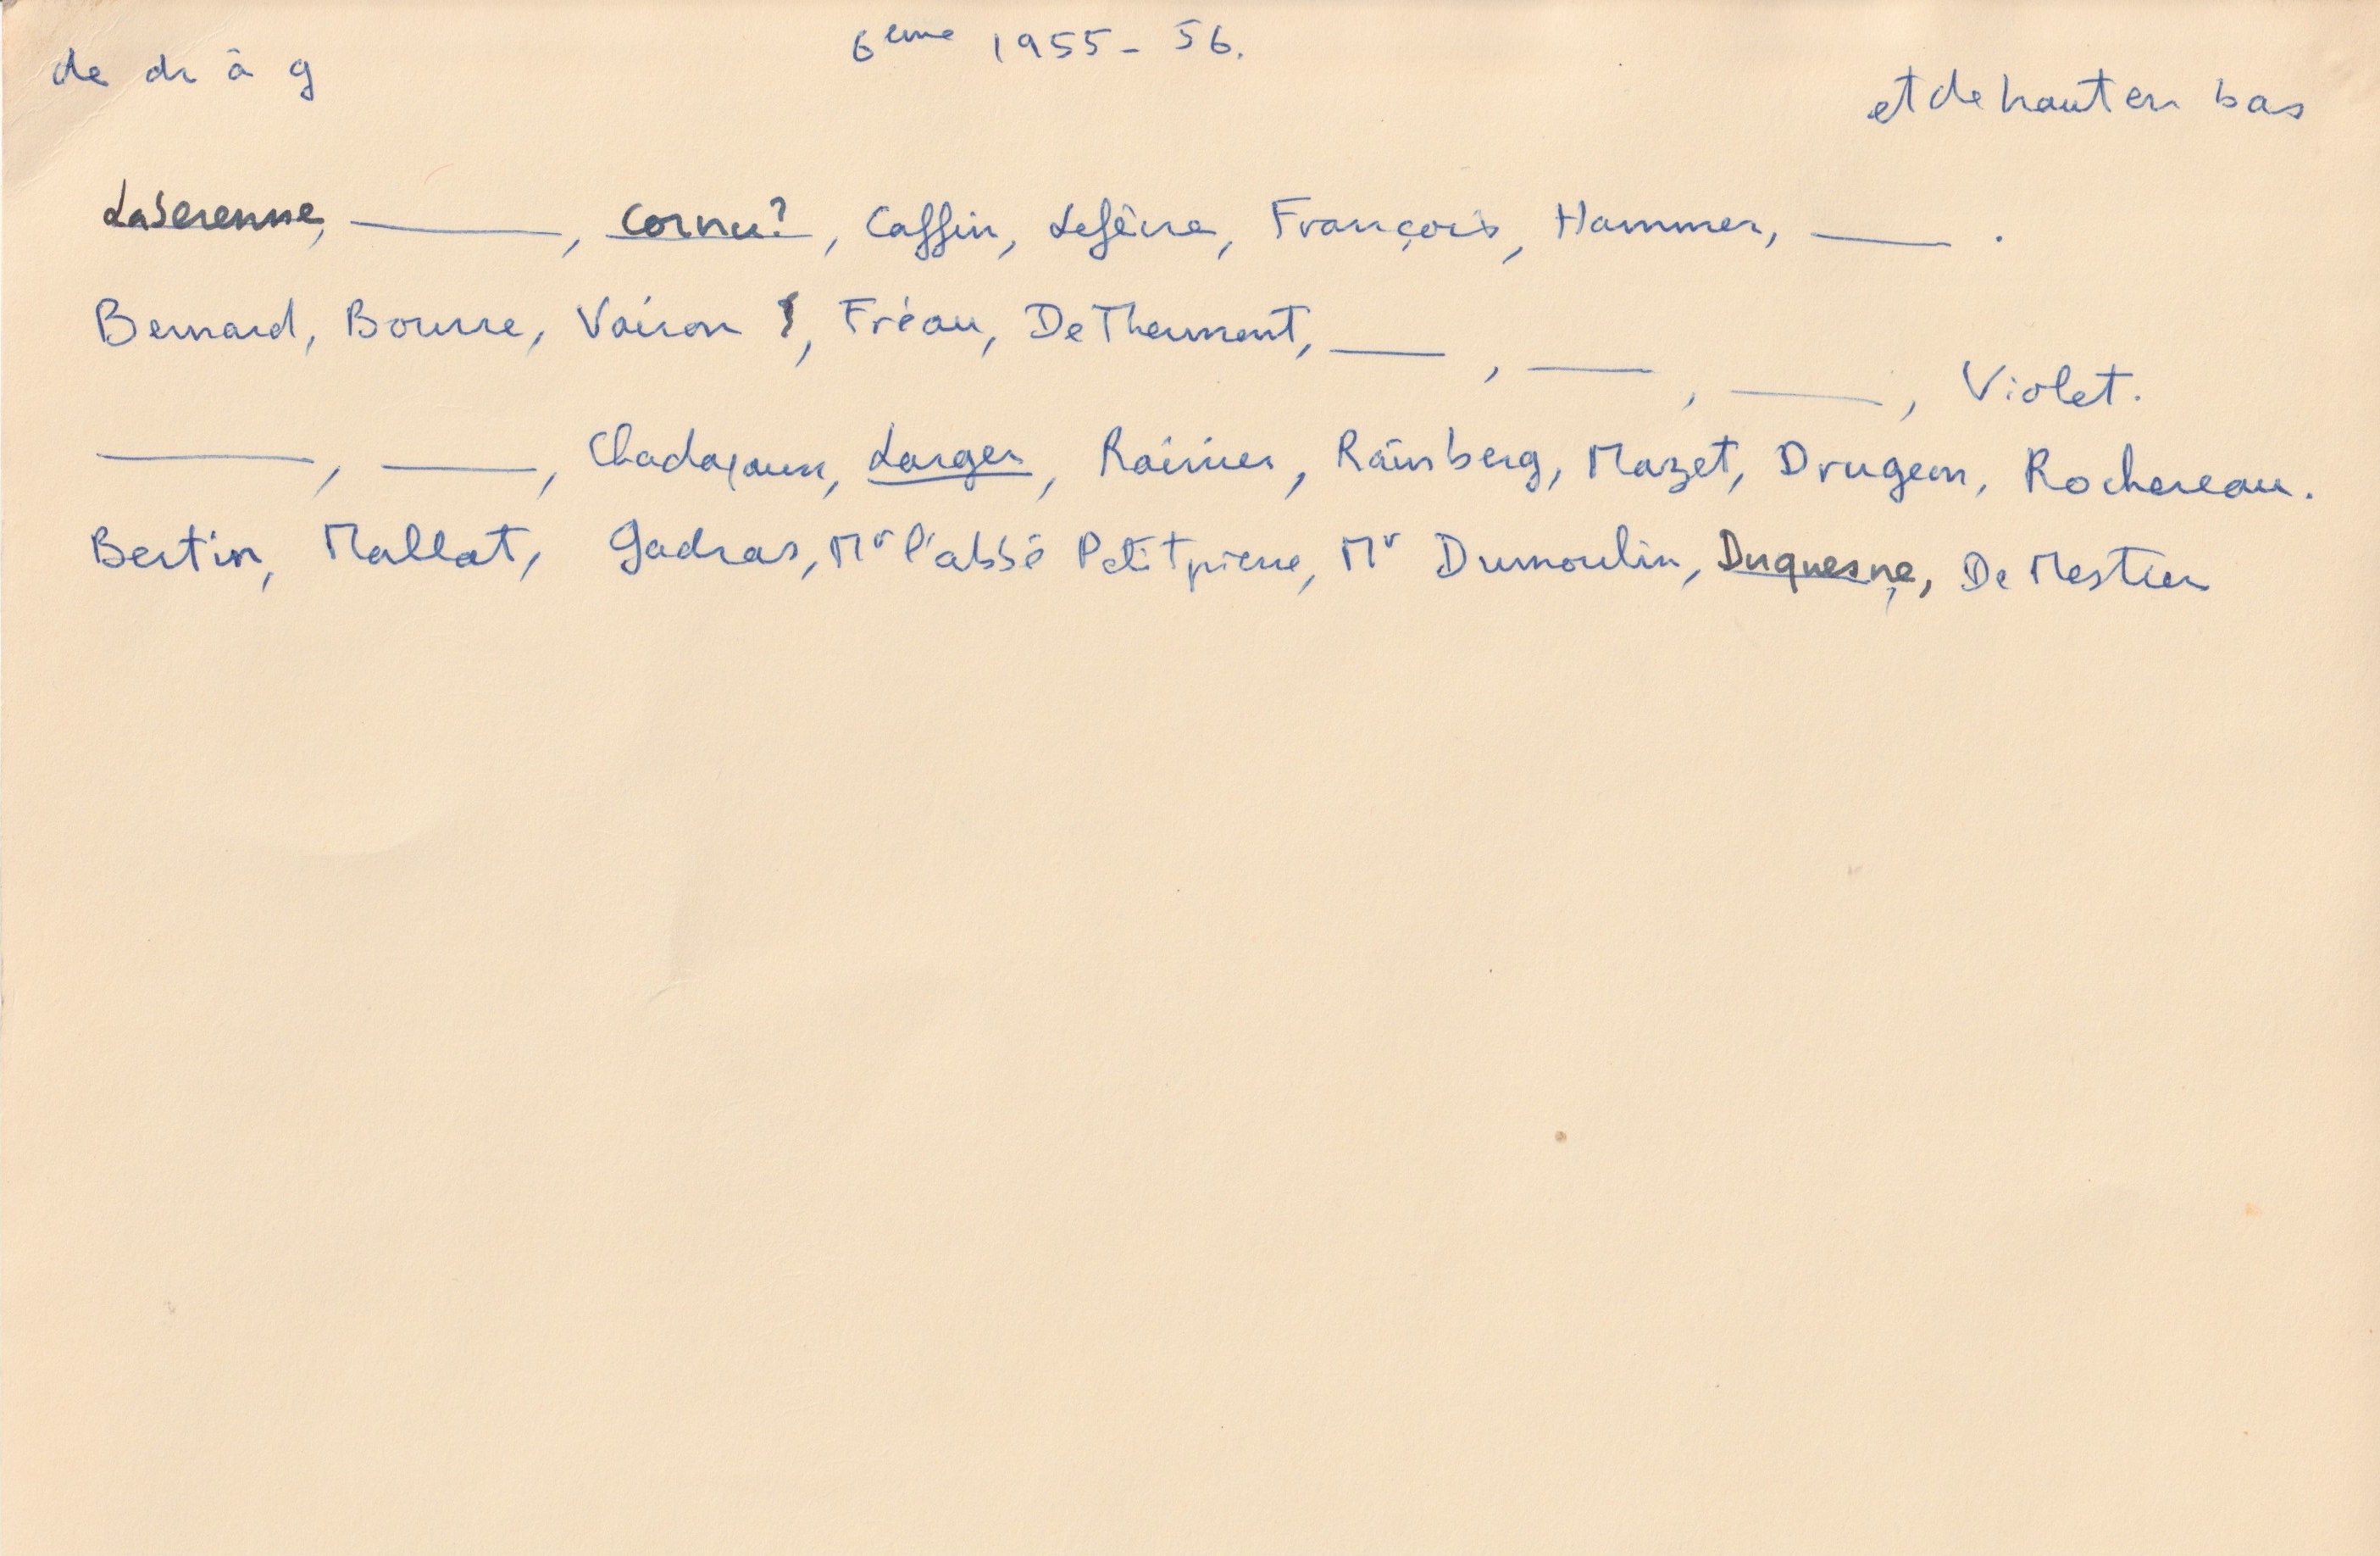 6eme 1955-56.
de dr à g
et de haut en bas
LaSerenne, ____, Cornu?, Caffin, Lefèvre, François, Hammer, ____.
Bernard, Bourre, Voiron ?, Fréau, De Thermont, ____, ____, ____, Violet.
____, ____, Larger, Rainier, Rainsberg, Mazet, Drugeon, Rochereau.
Bertin, Mallat, Gadras, Mr l'abbé Petitpierre, Mr Dumoulin, Duquesne, De Mestier